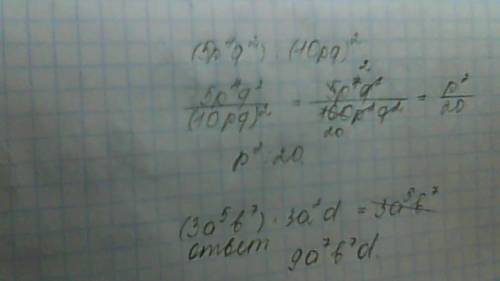 (5p⁴q²) : (10pq)²
5p⁴q² / (10pq)² = 5p⁴q² / 100p²q² = p² / 20
20
p² 20
(3a⁵b⁷) · 3a²d = 3a⁵b⁷
ответ 9a⁷b⁷d.